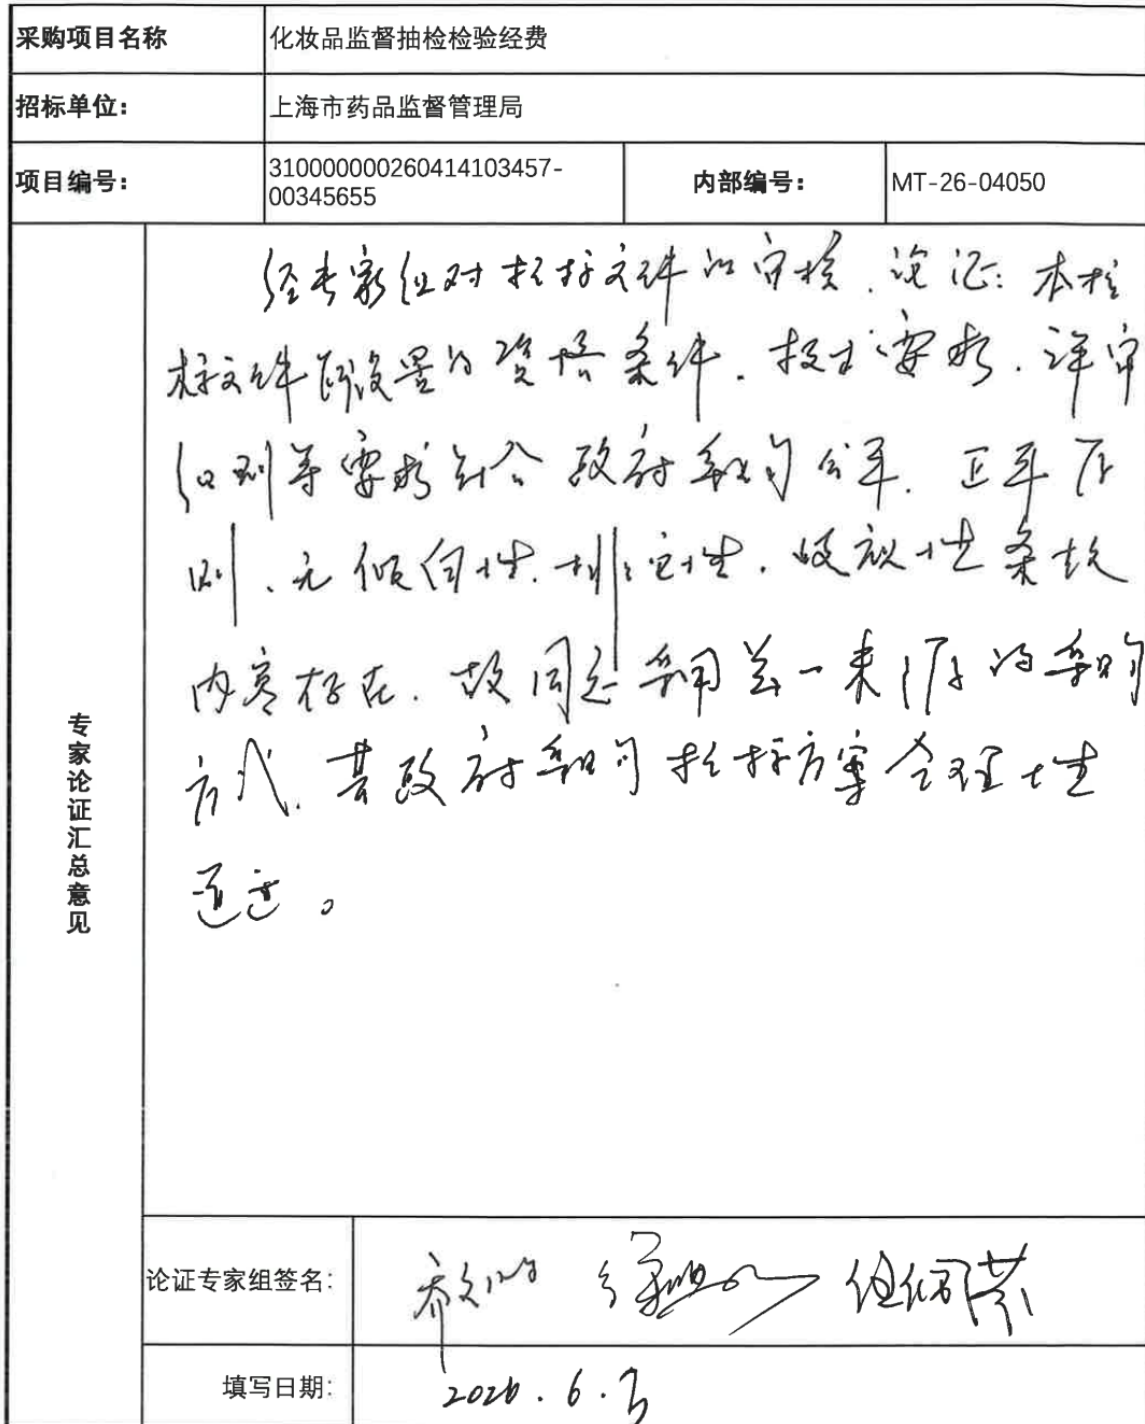 采购项目名称 化妆品监督抽检检验经费
招标单位: 上海市药品监督管理局
项目编号: 310000000260414103457-
00345655
内部编号: MT-26-04050
专家论证汇总意见
经专家组对招标文件的审核、论证: 本招
标文件所设置的资格条件、技术要求、评审
细则等要求符合政府采购公平、公正原
则、无倾向性、排它性、歧视性条款
内容存在. 故同意采用单一来源的采购
方式. 其政府采购招标方案合理性
通过。
论证专家组签名:
填写日期: 2026.6.